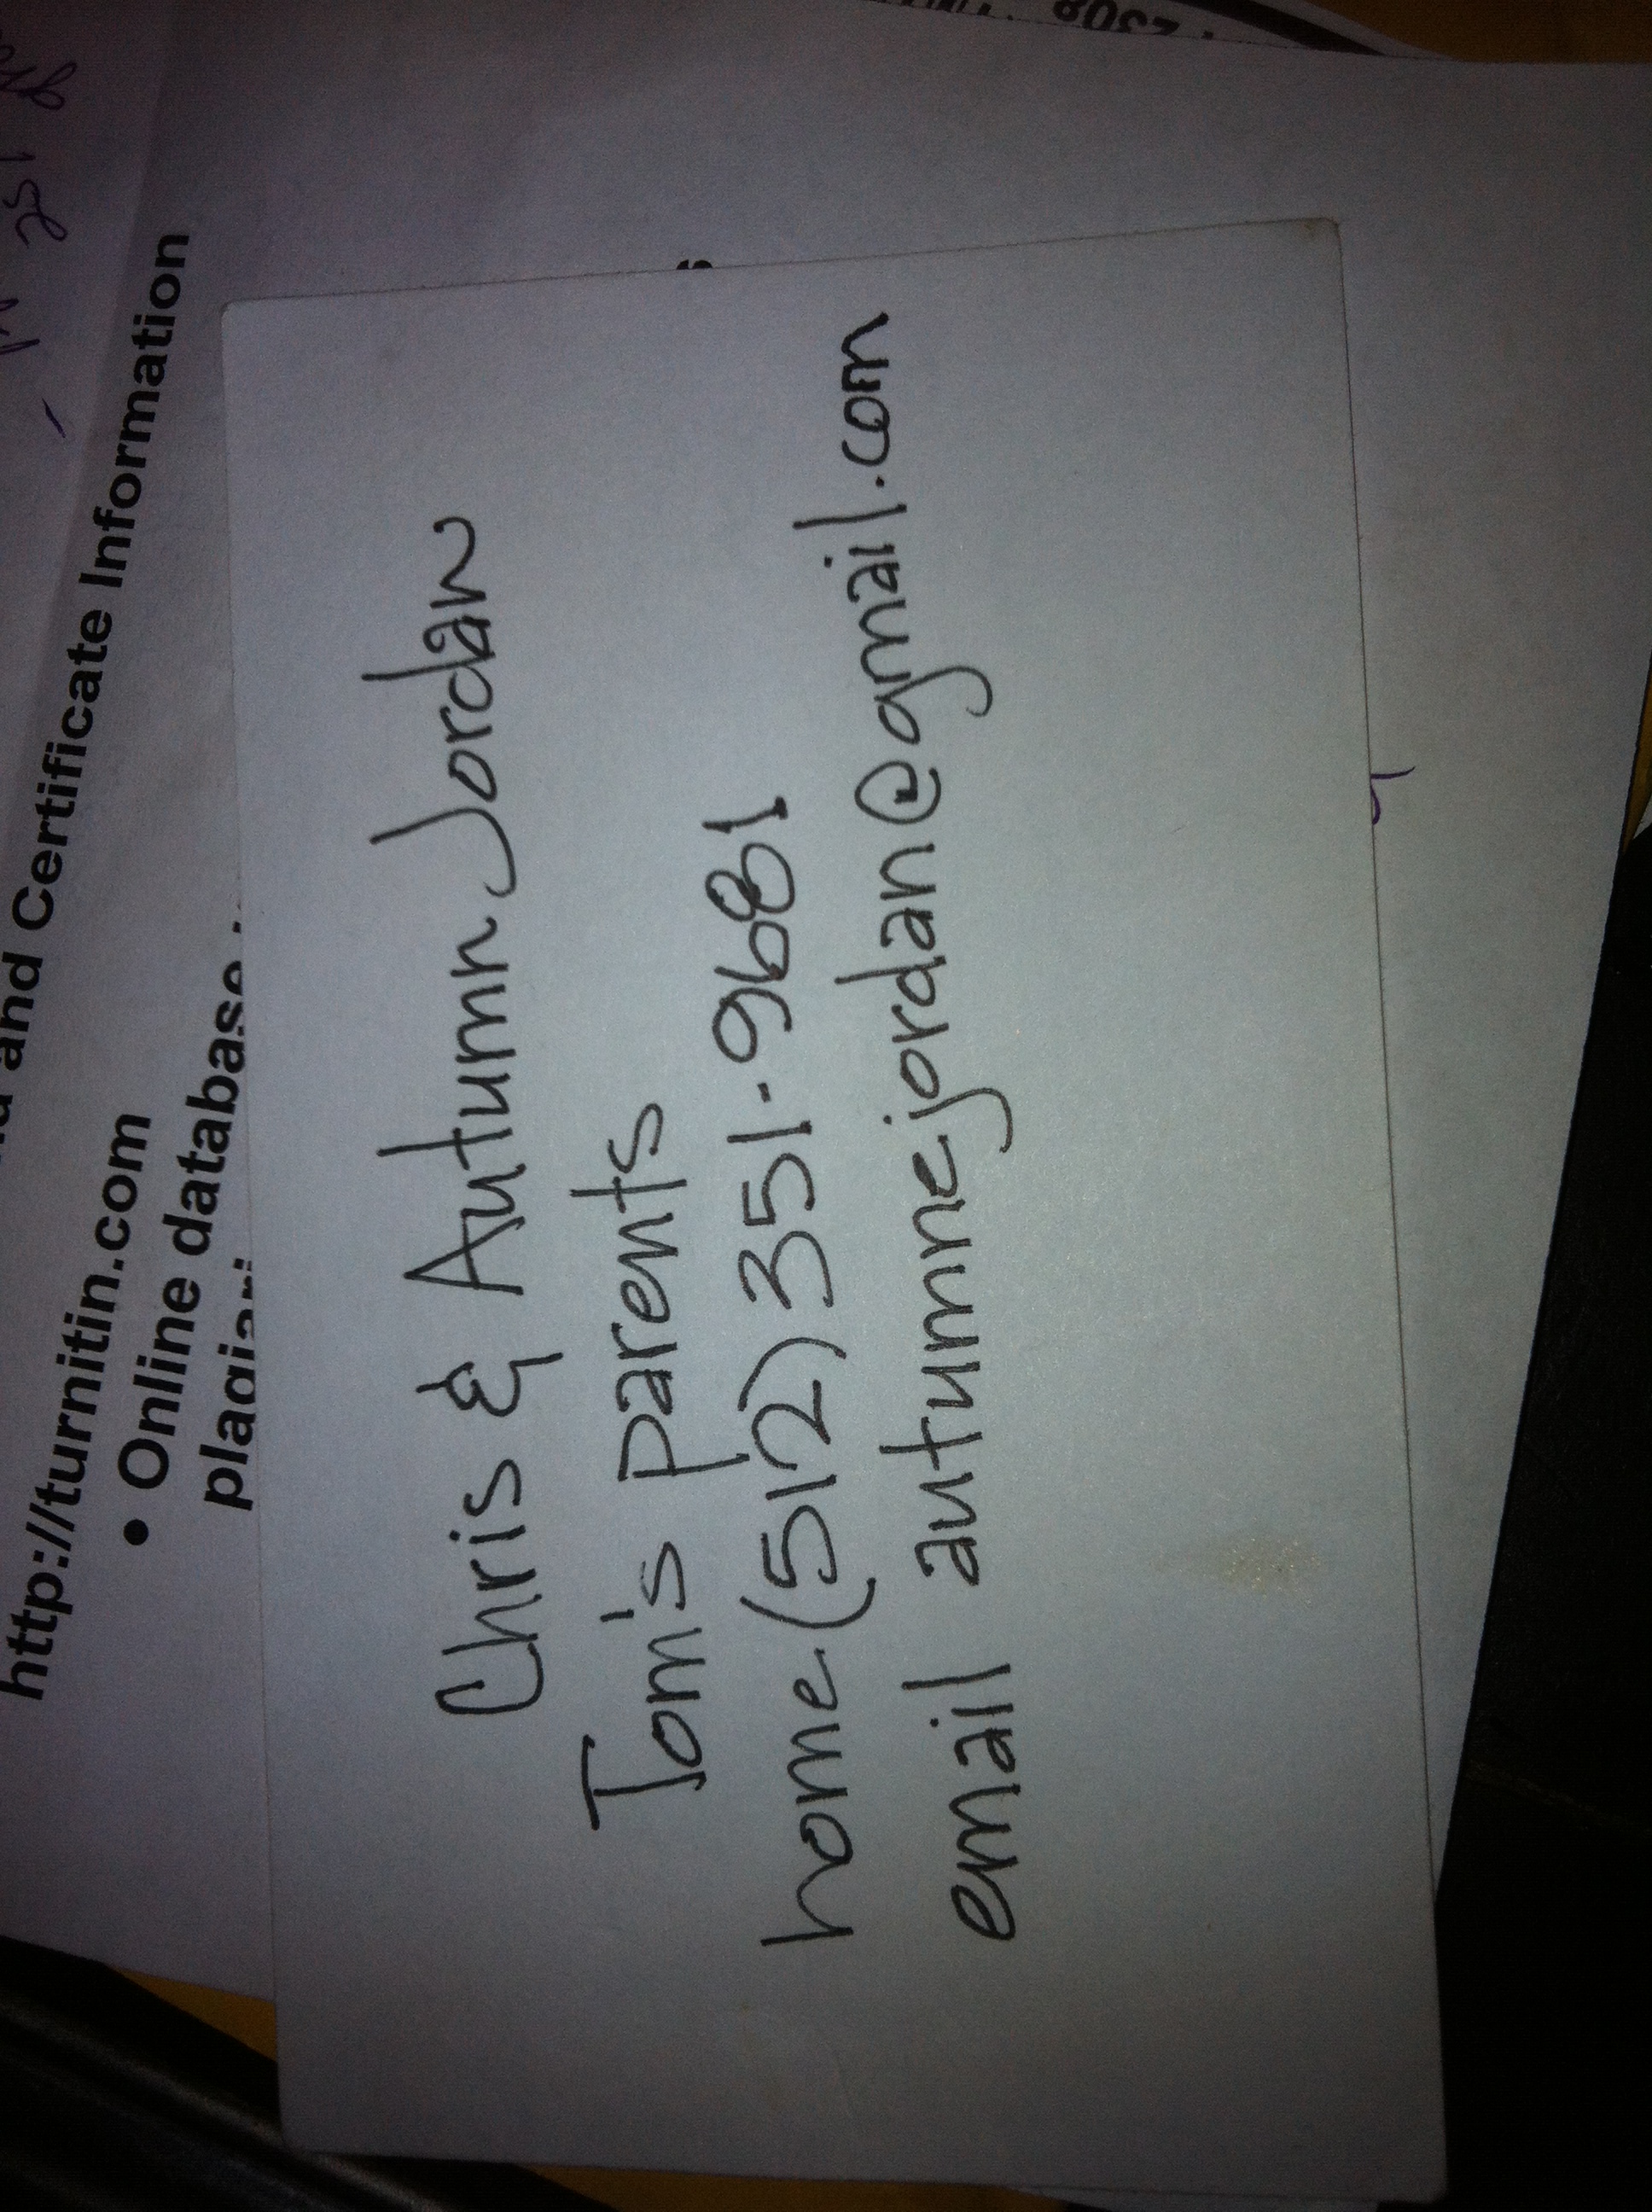 Chris & Autumn Jordan
Tom's parents
home (512) 351-9681
email autumnejordan@gmail.com
and Certificate Information
http://turnitin.com
• Online database